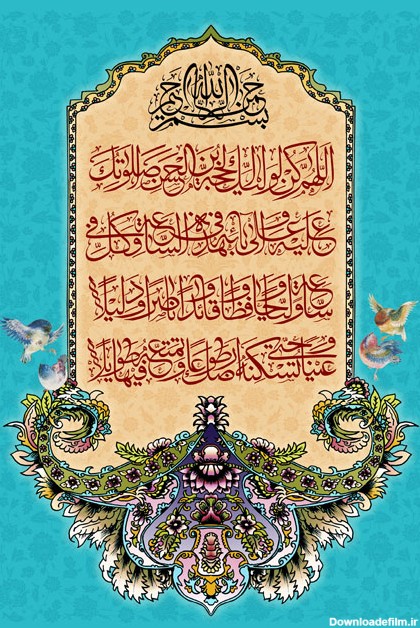 بسم الله الرحمن الرحیم
اللهم کن لولیک الحجة بن الحسن صلواتک
علیه و علی آبائه فی هذه الساعة و فی کل
ساعة ولیا و حافظا و قائدا و ناصرا و دلیلا
و عینا حتی تسکنه ارضک طوعا و تمتعه فیها طویلا
Downloadefilm.ir